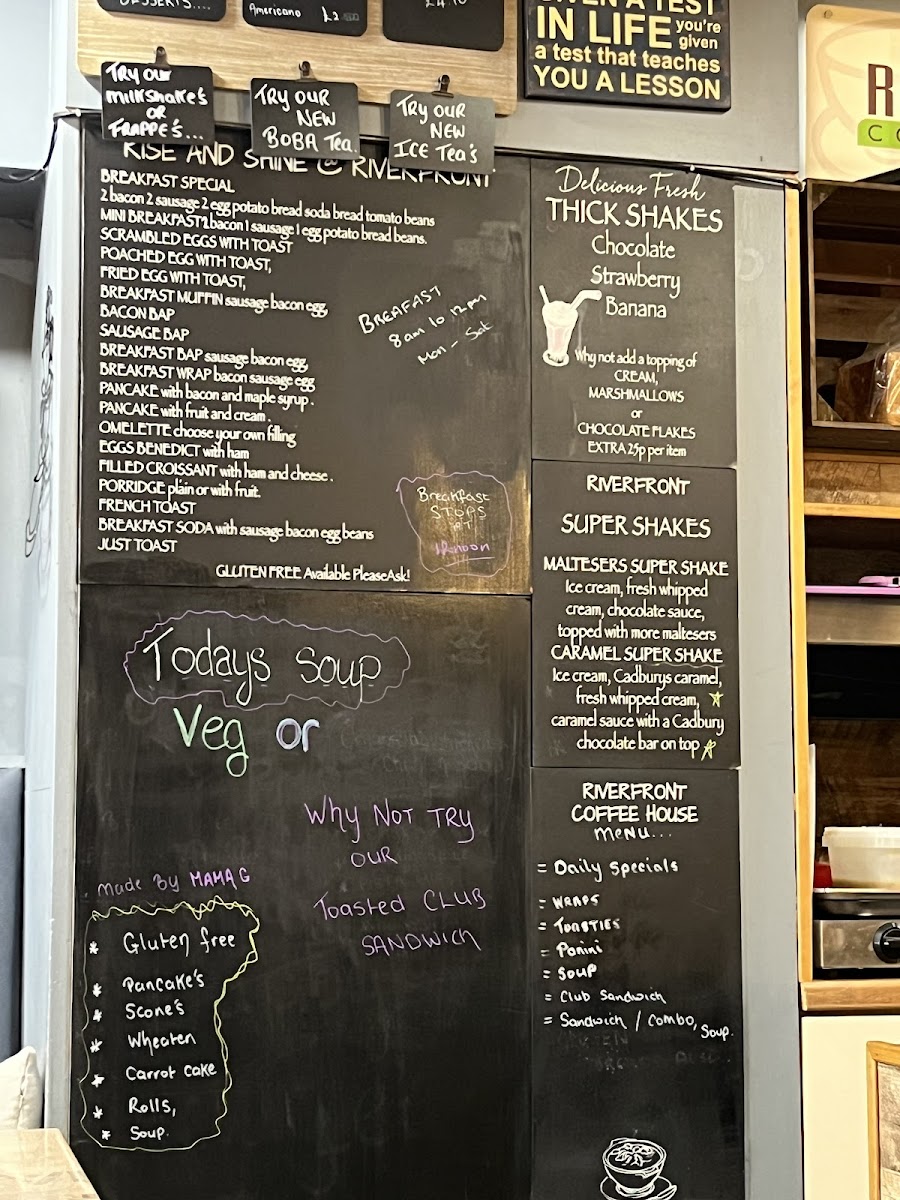 DESSERTS....
Americano £2
£4.10
GIVEN A TEST
IN LIFE you're given
a test that teaches
YOU A LESSON
TRY OUR
MILKSHAKE'S
OR
FRAPPE'S...
TRY OUR
NEW
BOBA Tea.
TRY OUR
NEW
ICE Tea's
RISE AND SHINE @ RIVERFRONT
BREAKFAST SPECIAL
2 bacon 2 sausage 2 egg potato bread soda bread tomato beans
MINI BREAKFAST 2 bacon 1 sausage 1 egg potato bread beans.
SCRAMBLED EGGS WITH TOAST
POACHED EGG WITH TOAST,
FRIED EGG WITH TOAST,
BREAKFAST MUFFIN sausage bacon egg,
BACON BAP
SAUSAGE BAP
BREAKFAST BAP sausage bacon egg,
BREAKFAST WRAP bacon sausage egg
PANCAKE with bacon and maple syrup .
PANCAKE with fruit and cream .
OMELETTE choose your own filling
EGGS BENEDICT with ham
FILLED CROISSANT with ham and cheese .
PORRIDGE plain or with fruit.
FRENCH TOAST
BREAKFAST SODA with sausage bacon egg beans
JUST TOAST
GLUTEN FREE Available PleaseAsk!
BREAFAST
8am to 12pm
Mon - Sat
Breakfast
STOPS
AT
12noon
Delicious Fresh
THICK SHAKES
Chocolate
Strawberry
Banana
Why not add a topping of
CREAM,
MARSHMALLOWS
or
CHOCOLATE FLAKES
EXTRA 25p per item
RIVERFRONT
SUPER SHAKES
MALTESERS SUPER SHAKE
Ice cream, fresh whipped
cream, chocolate sauce,
topped with more maltesers
CARAMEL SUPER SHAKE
Ice cream, Cadburys caramel,
fresh whipped cream,
caramel sauce with a Cadbury
chocolate bar on top
Todays Soup
Veg or
Why NOT TRY
OUR
Toasted CLUB
SANDWICH
made By MAMA G
* Gluten free
* Pancake's
* Scone's
* Wheaten
* Carrot cake
* Rolls,
* Soup.
RIVERFRONT
COFFEE HOUSE
menu...
= Daily Specials
= WRAPS
= TOASTIES
= Panini
= SOUP
= Club Sandwich
= Sandwich / Combo, Soup.